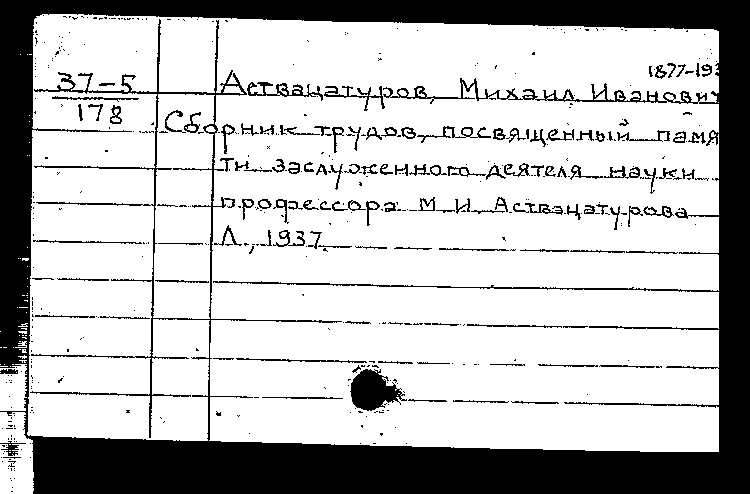 1877-193
37-5
178
Аствацатуров, Михаил Иванович
Сборник трудов, посвященный памя
ти заслуженного деятеля науки
профессора М. И. Аствацатурова
Л., 1937.